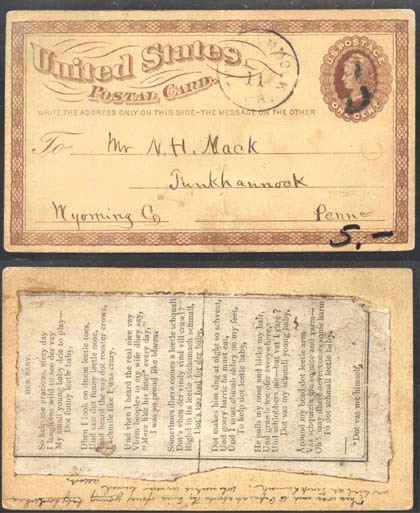 United States
POSTAL CARD.
WRITE THE ADDRESS ONLY ON THIS SIDE-THE MESSAGE ON THE OTHER
U.S. POSTAGE
ONE CENT
11
PA.
To Mr N. H. Mack
Tunkhannock
Wyoming Co Penna
5,-
DER BABY.
So help me gracious, efery day
I laugh me wild to see der vay
My schmall young baby drie to play—
Dot funny leetle baby.
When I look on dhem leetle toes,
Und saw der funny leetle nose,
Und heard der way dot rooster crows,
I schmile like I was crazy.
Und when I heard the real nice vay
Vhen beoples to my wife dhey say,
"More like his fater every day,"
I was so proud like blazes.
Sometimes dhere comes a leetle schquall
Dot's vhen der vindy vind vill crawl
Right in its leetle schtomach schmall,
Dot's too bad for der baby.
Dot makes him sing at night so schveet,
Und gorrybarric he must eat,
Und I must chumb shbry on my feet,
To help dot leetle baby.
He pulls my nose and kicks my hair,
Und grawls me ofer everywhere,
Und schlobbers me—but vat I care?
Dot vas my schmall young baby.
Around my head dot leetle arm
Vas schqueezin me so nice and varm—
Oh! may dhere never coome some harm
To dot schmall leetle baby.